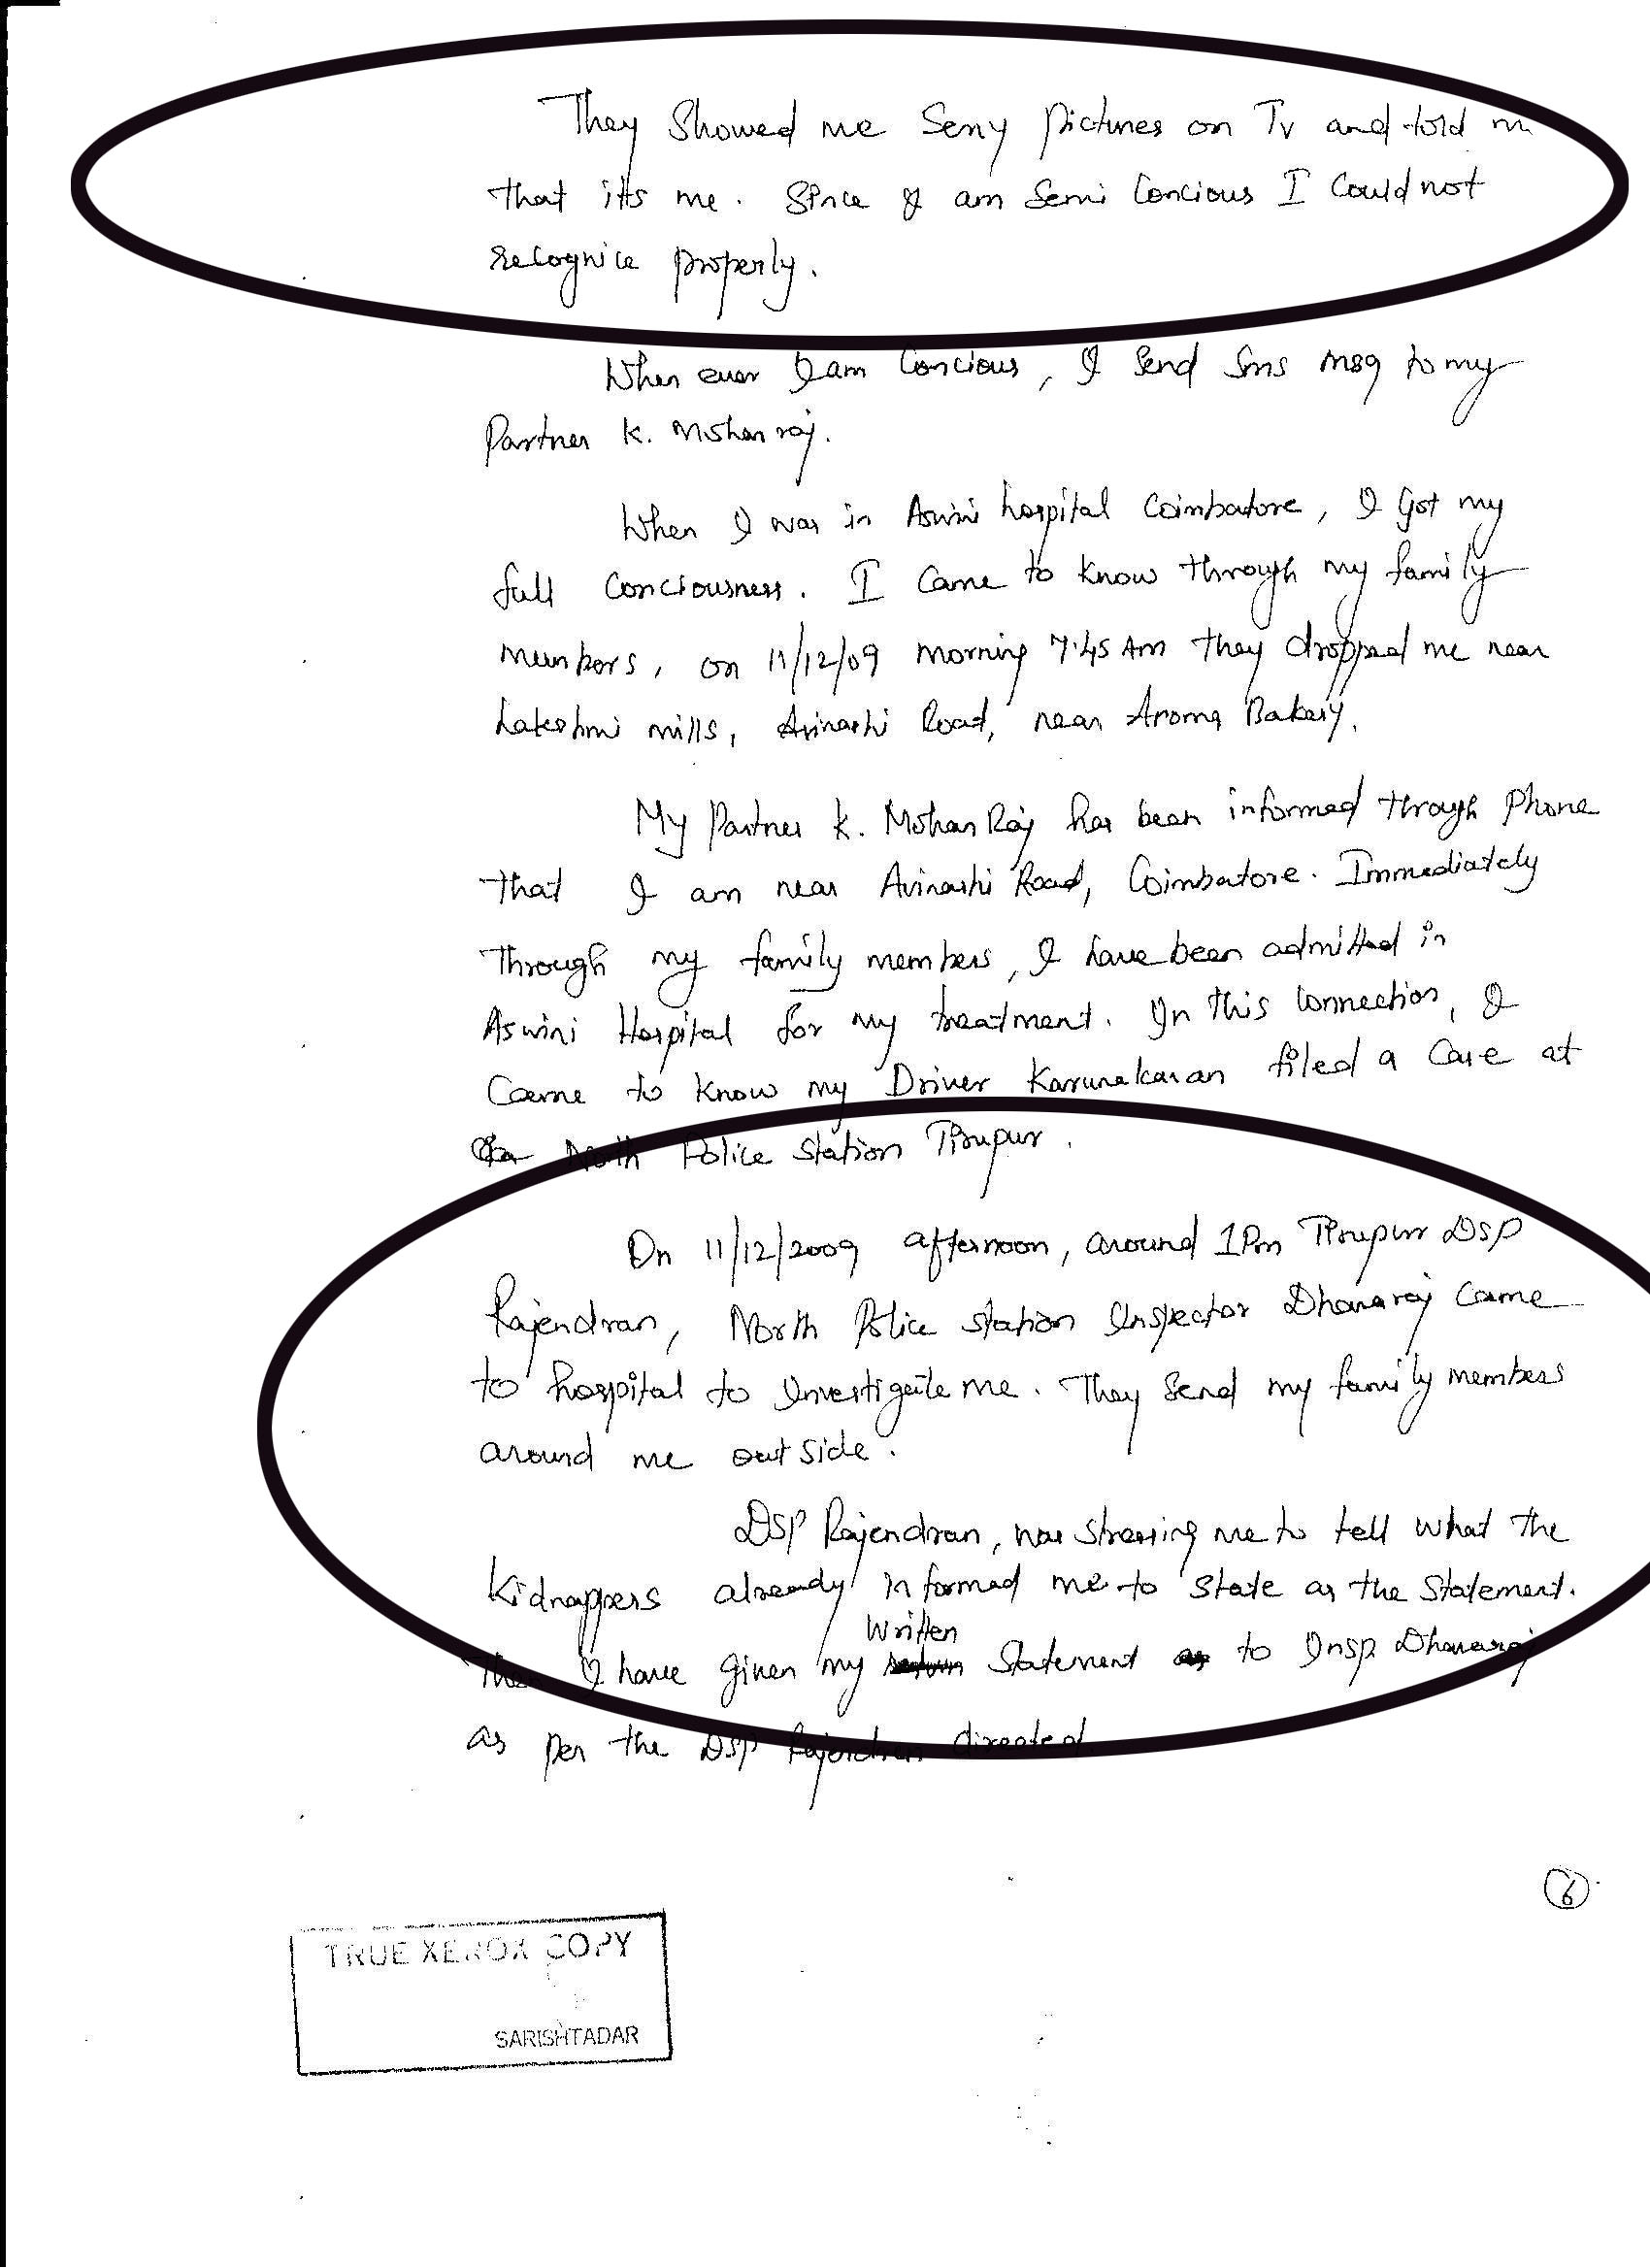 They Showed me Sexy Pictures on Tv and told me
that its me. Since I am Semi Concious I Could not
recognice properly.
When ever I am Concious, I Send Sms msg to my
Partner K. Mohan raj.
When I was in Aswini hospital Coimbatore, I Got my
full Conciousness. I Came to know through my family
members, on 11/12/09 morning 7.45 Am they dropped me near
Lakshmi mills, Avinashi Road, near Aroma Bakery.
My Partner K. Mohan Raj has been informed through phone
that I am near Avinashi Road, Coimbatore. Immediately
through my family members, I have been admitted in
Aswini Hospital for my treatment. In this Connection, I
Came to know my Driver Karunakaran filed a Case at
North Police Station Tirupur.
On 11/12/2009 afternoon, around 1Pm Tirupur DSP
Rajendran, North Police station Inspector Dhanaraj Came
to hospital to Investigate me. They Send my family members
around me out side.
DSP Rajendran, was stressing me to tell what the
Kidnappers already informed me to State as the Statement.
Written
Then I have given my Statement to Insp Dhanaraj
as per the DSP Rajendran directed
6
TRUE XEROX COPY
SARISHTADAR